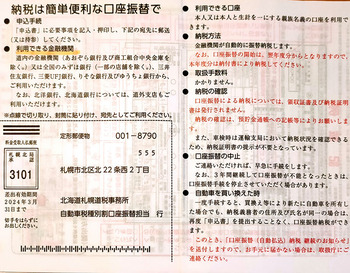 納税は簡単便利な口座振替で
●申込手続
「申込書」に必要事項を記入・押印し、下記の宛先に郵送
（又は持参）してください。
●利用できる金融機関
道内の金融機関（あおぞら銀行及び商工組合中央金庫を
除く）又は全国のみずほ銀行（一部の店舗を除く）、三井住
友銀行、三菱UFJ銀行、りそな銀行及びゆうちょ銀行から、
ご利用いただけます。
なお、北洋銀行、北海道銀行については、道外支店でも
ご利用いただけます。
※点線で切り取り、封筒に貼り付け、宛先としてご利用ください。
料金受取人払郵便
札幌北局
承認
3101
差出有効期間
2024年3月
31日まで
切手をはらずに
お出しください。
定形郵便物
001-8790
555
札幌市北区北22条西2丁目
北海道札幌道税事務所
自動車税種別割口座振替担当 行
●利用できる口座
本人又は本人と生計を一にする親族名義の口座を利用でき
ます。
●納税方法
金融機関が自動的に振替納税します。
なお、口座振替の開始は、翌年度分からとなりますので、
本年度分は納付書により納税してください。
●取扱手数料
かかりません。
●納税の確認
口座振替による納税については、領収証書及び納税証明
書は発行されません。
納税の確認は、預貯金通帳への記帳等によりお願いしま
す。
また、車検時は運輸支局において納税状況を確認できる
ため、納税証明書の提示が不要となっています。
●口座振替の中止
ご連絡いただければ、早急に手続をします。
なお、3年間継続して口座振替が不能となったときは、
口座振替手続を停止させていただく場合があります。
●自動車を買い換えた時
一度手続すると、買換え等により新たに自動車を所有し
た場合でも、納税義務者の住所及び氏名が同一の場合は、
再度「申込書」を提出することなく、口座振替が継続され
ます。
このとき、「口座振替（自動払込）納税 継続のお知らせ」
を送付しますので、お手元に届かない場合は、取扱庁にご
連絡ください。